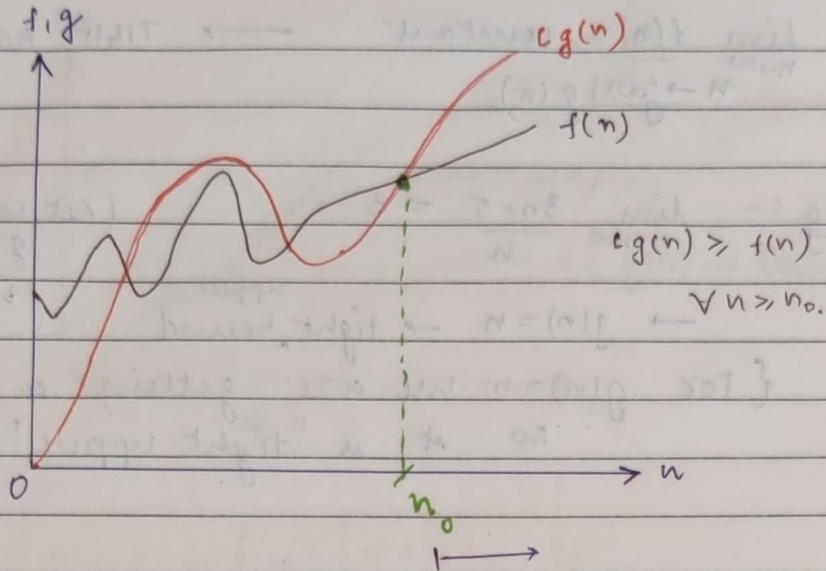 f, g
cg(n)
f(n)
cg(n) ≥ f(n)
∀ n ≥ n₀.
n
0
n₀